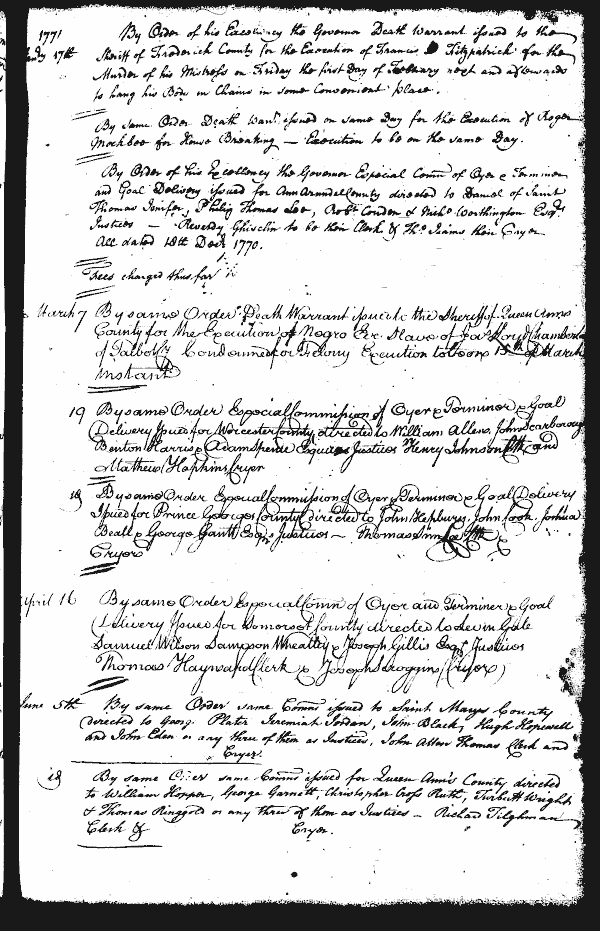 1771
By Order of his Excellency the Governor Death Warrant issued to the
17th Sheriff of Frederick County for the Execution of Francis Fitzpatrick for the
Murder of his Mistress on Friday the first Day of February next and afterwards
to hang his Body in Chains in some Convenient place.
By same Order Death Warrt issued on same Day for the Execution of Roger
Mockbee for House Breaking — Execution to be on the same Day.
By Order of his Excellency the Governor Especial Comn of Oyer & Terminer
and Goal Delivery issued for Ann Arundel County directed to Daniel of Saint
Thomas Jenifer, Philip Thomas Lee, Robt Couden & Nichs Worthington Esqrs
Justices — Reverdy Ghiselin to be their Clerk & Thos Jiams their Cryer
All dated 18th Decr 1770.
Fees charged thus far
March 7 By same Order Death Warrant issued to the Sheriff of Queen Anns
County for the Execution of Negro Slave of Lloyd Chamberlain
of Talbot Cty Condemned for Felony Execution to be on 15th of March
Instant
19 By same Order Especial Commission of Oyer & Terminer & Goal
Delivery Issued for Worcester County directed to William Allen, John Scarborough
Benton Harris & Adam Spence Esquires Justices Henry Johnson Clk and
Mathew Hopkins Cryer
18 By same Order Especial Commission of Oyer & Terminer & Goal Delivery
Issued for Prince Georges County directed to John Hepburn, John Cook, Joshua
Beall & George Gantt Esqrs Justices — Thomas
Cryer
April 16 By same Order Especial Comn of Oyer and Terminer & Goal
Delivery Issued for Somerset County directed to Levin Gale
Samuel Wilson Sampson Wheatley & Joseph Gillis Esqrs Justices
Thomas Hayward Clerk & Joseph Scroggin Cryer
June 5th By same Order same Comns issued to Saint Marys County
directed to Georg. Plater Jeremiah Jordan, John Black, Hugh Hopewell
and John Eden or any three of them as Justices, John Allen Thomas Clerk and
Cryer.
18 By same Order same Comns issued for Queen Ann's County directed
to William Hopper, George Garnett, Christopher Cross Ruth, Turbutt Wright
& Thomas Ringgold or any three of them as Justices — Richard Tilghman
Clerk & Cryer.